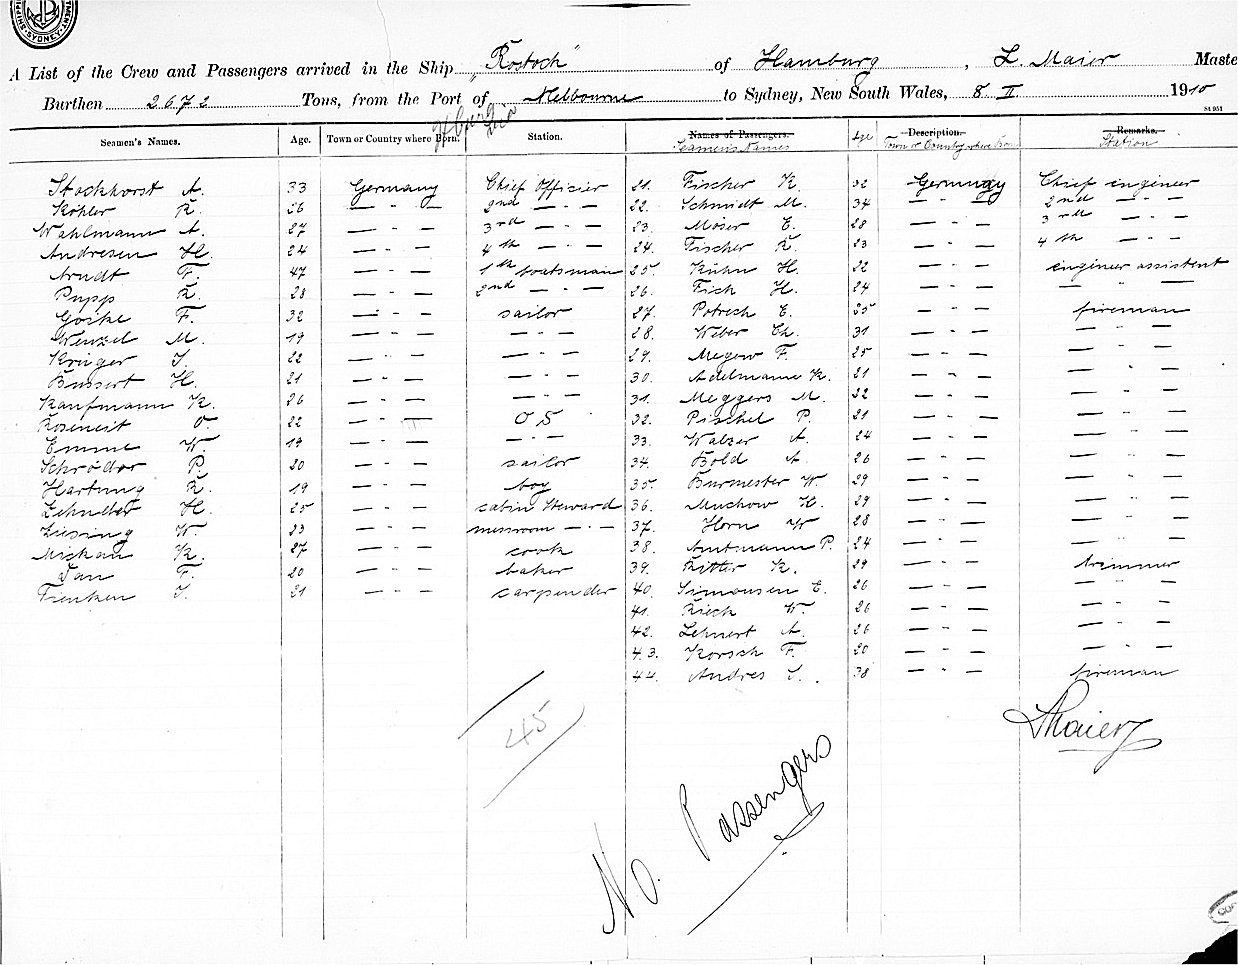 SHIPPING DEPARTMENT · SYDNEY
A List of the Crew and Passengers arrived in the Ship "Rostock" of Hamburg, L. Maier Maste
Burthen 2672 Tons, from the Port of Melbourne to Sydney, New South Wales, 8 II 1910
Seamen's Names. Age. Town or Country where Born. Station. Names of Passengers. Seamen's Names Age Description. Town or Country where Born Remarks. Station
Stockhorst A. 33 Germany Chief Officier 21. Fischer K. 32 Germany Chief engineer
Köhler R. 26 — " — 2nd — " — 22. Schmidt M. 34 — " — 2nd — " —
Wahlmann A. 27 — " — 3rd — " — 23. Möser E. 28 — " — 3rd — " —
Andresen H. 24 — " — 4th — " — 24. Fischer R. 23 — " — 4th — " —
Arndt F. 47 — " — 1th boatsmain 25. Kühn H. 22 — " — engineer assistent
Pupp R. 28 — " — 2nd — " — 26. Fick H. 24 — " — — " —
Goske F. 32 — " — sailor 27. Potrech E. 25 — " — fireman
Wenzel M. 19 — " — — " — 28. Weber Ch. 31 — " — — " —
Krüger J. 22 — " — — " — 29. Megow F. 25 — " — — " —
Bussert H. 21 — " — — " — 30. Adelmann K. 21 — " — — " —
Kaufmann K. 26 — " — — " — 31. Meggers M. 22 — " — — " —
Roseneit O. 22 — " — O S 32. Pischel P. 21 — " — — " —
Emme W. 19 — " — — " — 33. Walzer A. 24 — " — — " —
Schröder P. 20 — " — sailor 34. Bold A. 26 — " — — " —
Hartung R. 19 — " — boy 35. Burmester W 29 — " — — " —
Lehndter H. 25 — " — cabin steward 36. Muchow H. 29 — " — — " —
Ziesing W. 23 — " — messroom — " — 37. Horn W 28 — " — — " —
Mickan K. 27 — " — cook 38. Amtmann P. 24 — " — — " —
Jan F. 20 — " — baker 39. Ritter K. 29 — " — trimmer
Fienken J. 31 — " — carpender 40. Simonsen E. 26 — " — — " —
41. Rieck W. 26 — " — — " —
42. Lehnert A. 26 — " — — " —
43. Korsch F. 20 — " — — " —
44. Andres J. 38 — " — fireman
45
L Maier
No. Passengers